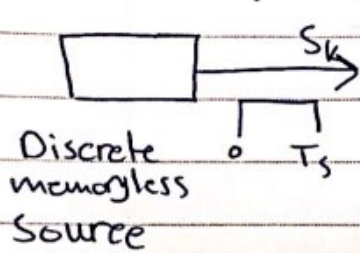 Sk
Discrete
memoryless
Source
o Ts